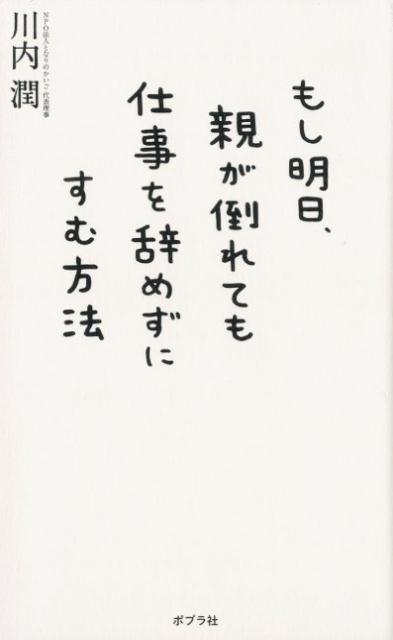 もし明日、
親が倒れても
仕事を辞めずに
すむ方法
NPO法人となりのかいご 代表理事
川内 潤
ポプラ社